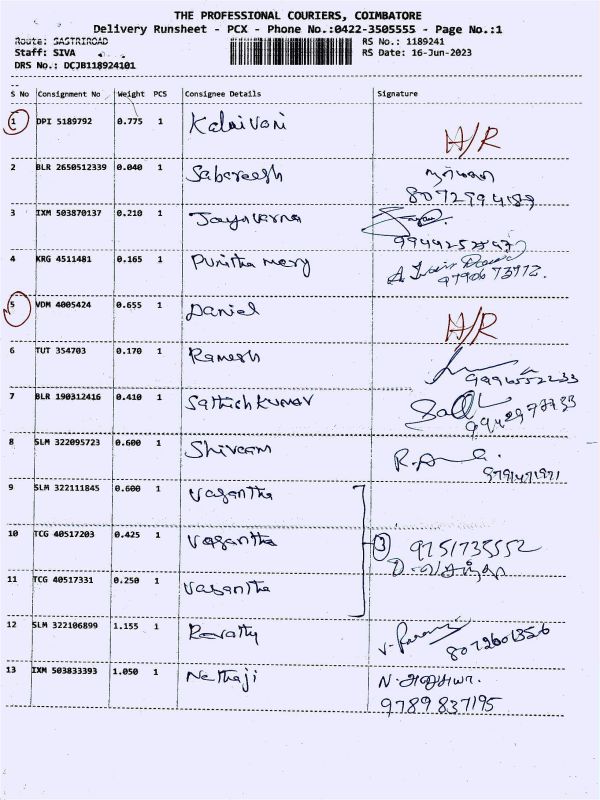 THE PROFESSIONAL COURIERS, COIMBATORE
Delivery Runsheet - PCX - Phone No.:0422-3505555 - Page No.:1
Route: SASTRIROAD
RS No.: 1189241
Staff: SIVA
RS Date: 16-Jun-2023
DRS No.: DCJB118924101
S No Consignment No Weight PCS Consignee Details Signature
1 DPI 5189792 0.775 1 Kalaivani A/R
2 BLR 2650512339 0.040 1 Sabareesh
8072994189
3 IXM 503870137 0.210 1 Jayavarna
4 KRG 4511481 0.165 1 Punitha mary
9790673972.
5 VDM 4005424 0.655 1 Daniel A/R
6 TUT 354703 0.170 1 Ramesh
9996552233
7 BLR 190312416 0.410 1 Sathish Kumar
8 SLM 322095723 0.600 1 Shivram
9791471971
9 SLM 322111845 0.600 1 Vasantha
10 TCG 40517203 0.425 1 Vasantha 3 9751735552
11 TCG 40517331 0.250 1 Vasantha
12 SLM 322106899 1.155 1 Revathy
8072601356
13 IXM 503833393 1.050 1 Nethaji
9789837195